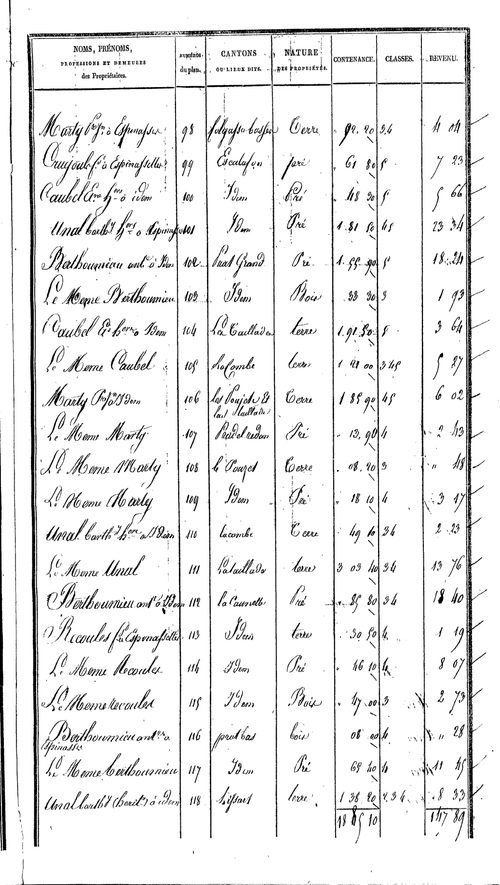 NOMS, PRÉNOMS, PROFESSIONS ET DEMEURES des Propriétaires. NUMÉROS du plan. CANTONS OU LIEUX DITS. NATURE DES PROPRIÉTÉS. CONTENANCE. CLASSES. REVENU.
Marty à Espinasse 98 Terre 92 20 34 4 04
à Espinasselle 99 Escalafon pré 61 80 5 7 23
Caubel à idem 100 Idem Pré 48 30 5 5 66
Unal 101 Idem Pré 1 81 50 45 23 34
Berthoumieu ant. à Idem 102 Prat Grand Pré 1 55 90 5 18 24
Le Meme Berthoumieu 103 Idem Bois 33 30 3 1 93
Caubel à Idem 104 La Taillade terre 1 91 50 3 64
Le Meme Caubel 105 La Combe terre 1 28 00 345 5 87
Marty à Idem 106 Terre 1 85 90 45 6 02
Le Meme Marty 107 Pré 13,90 4 2 43
Le Meme Marty 108 le Pouget Terre 08 20 3 " 48
Le Meme Marty 109 Idem Pré 18 10 4 3 17
Unal barth. à Idem 110 lacombe Terre 49 10 34 2 23
Le Meme Unal 111 La taillade terre 3 03 40 34 13 76
Berthoumieu ant. à Idem 112 la Caunette Pré 85 80 34 18 40
Recoules Espinasselles 113 Idem terre 30 50 4 1 19
Le Meme Recoules 114 Idem Pré 46 10 4 8 07
Le Meme recoules 115 Idem Bois 47 00 3 2 73
Berthoumieu à Espinasse 116 prat bas bois 08 00 4 " 28
Le Meme berthoumieu 117 Idem Pré 65 40 4 11 45
Unal barth. à idem 118 terre 1 38 20 2.34 8 33
18 85 10 147 89